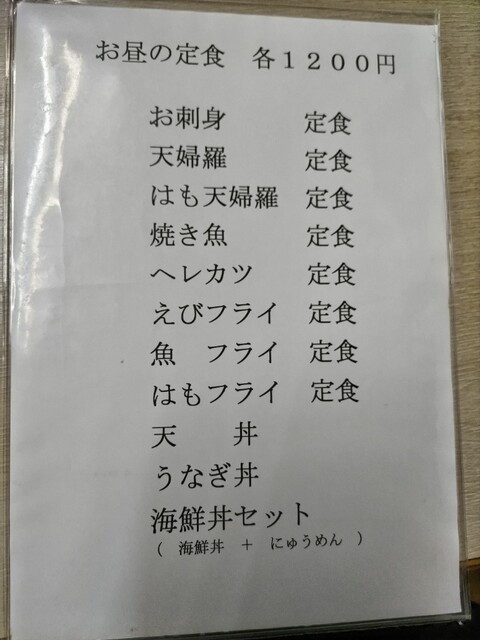 お昼の定食　各１２００円
お刺身　定食
天婦羅　定食
はも天婦羅　定食
焼き魚　定食
ヘレカツ　定食
えびフライ　定食
魚　フライ　定食
はもフライ　定食
天　　丼
うなぎ丼
海鮮丼セット
（　海鮮丼　＋　にゅうめん　）